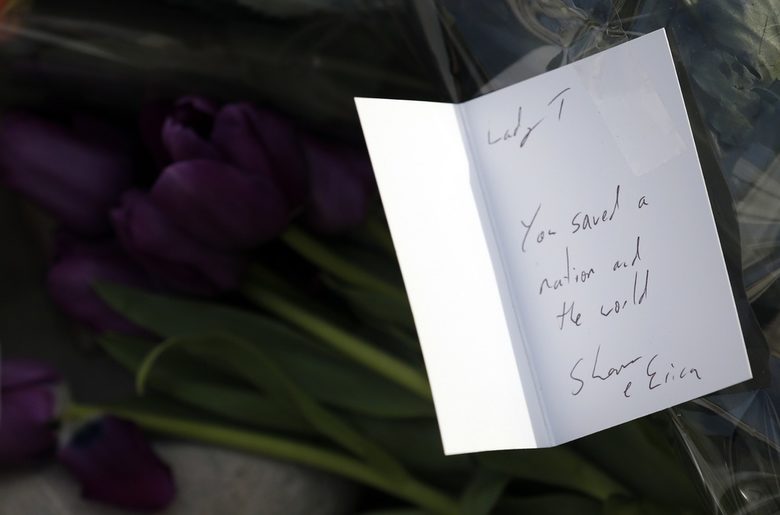 Lady T
You saved a
nation and
the world
Shawn
e Erica